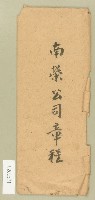 南榮公司章程